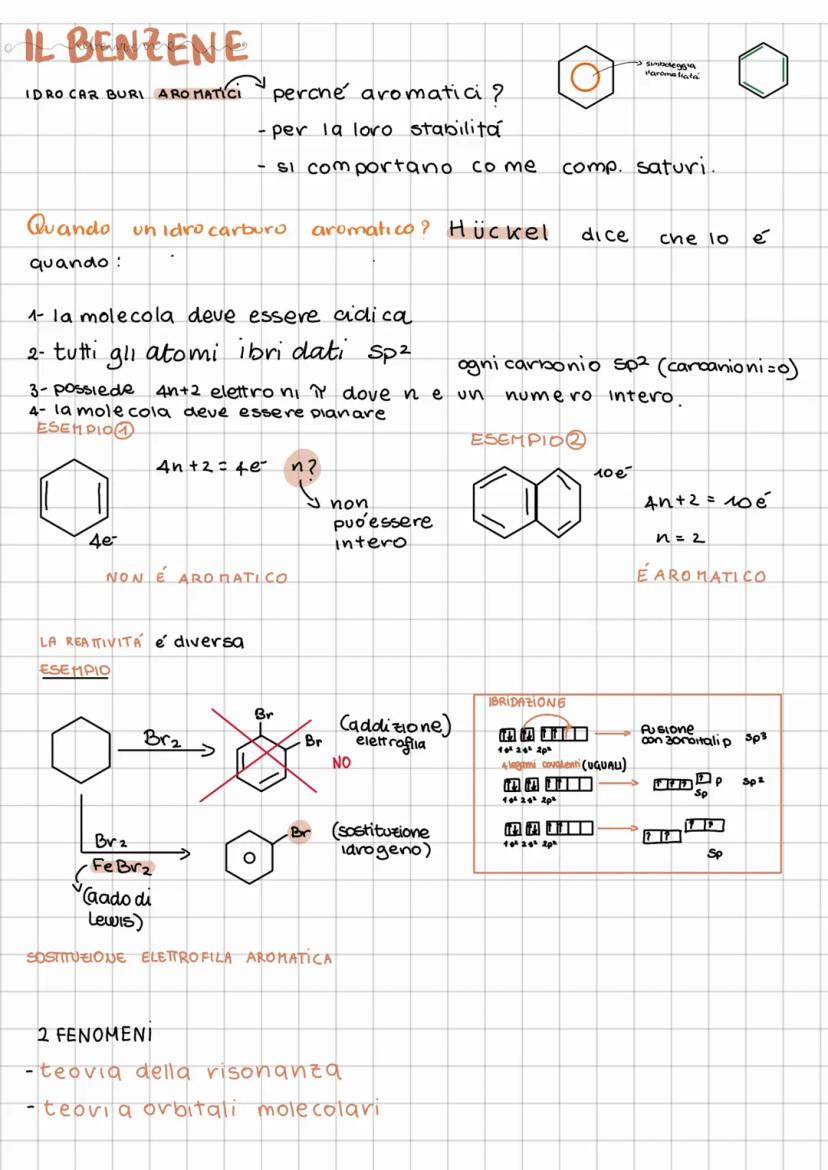 IL BENZENE
simboleggia
l'aromaticità
IDROCARBURI AROMATICI perché aromatici?
- per la loro stabilitá
- si comportano come comp. saturi.
Quando un idrocarburo aromatico? Hückel dice che lo é
quando:
1- la molecola deve essere ciclica
2- tutti gli atomi ibridati sp²
ogni carbonio sp² (carcanioni=0)
3- possiede 4n+2 elettroni π dove n e un numero intero.
4- la molecola deve essere planare
ESEMPIO 1
4n+2 = 4e- n?
4e-
non
puó essere
intero
NON É AROMATICO
ESEMPIO 2
10e-
4n+2 = 10é
n = 2
É AROMATICO
LA REATTIVITÁ é diversa
ESEMPIO
Br2
Br
Br
(addizione)
elettrofila
NO
Br2
FeBr2
(acido di
Lewis)
Br
(sostituzione
idrogeno)
IBRIDAZIONE
1s² 2s² 2p²
fusione
con 3 orbitali p sp3
4 legami covalenti (UGUALI)
1s² 2s² 2p²
p sp2
sp
1s² 2s² 2p²
sp
SOSTITUZIONE ELETTROFILA AROMATICA
2 FENOMENI
- teoria della risonanza
- teoria orbitali molecolari